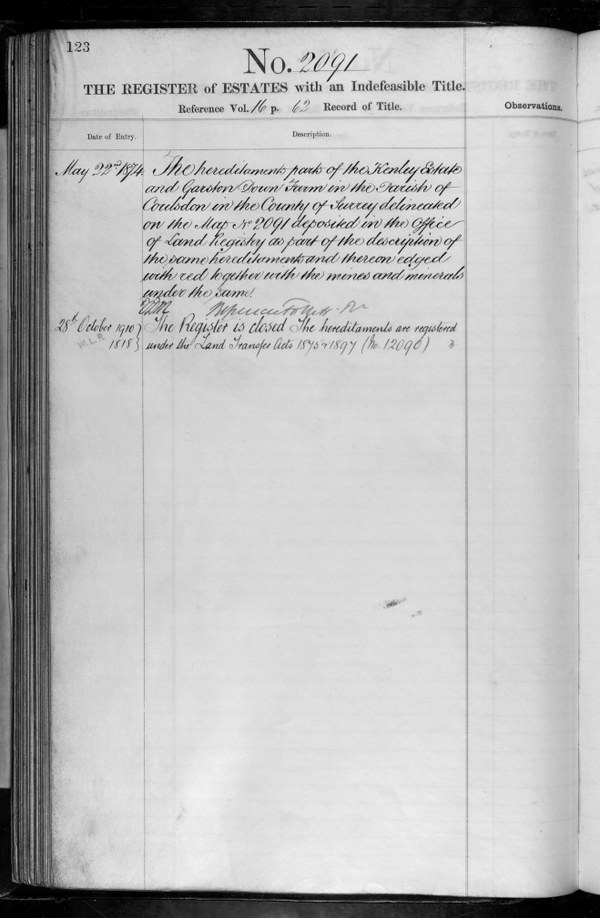 123
No. 2091
THE REGISTER of ESTATES with an Indefeasible Title.
Reference Vol. 16 p. 63 Record of Title.
Observations.
Date of Entry.
Description.
May 22nd 1874.
The hereditaments parts of the Kenley Estate
and Garston Down Farm in the Parish of
Coulsdon in the County of Surrey delineated
on the Map No 2091 deposited in the Office
of Land Registry as part of the description of
the same hereditaments and thereon edged
with red together with the mines and minerals
under the same.
28th October 1910
1818
W.L.R.
The Register is closed The hereditaments are registered
under the Land Transfer Acts 1875 & 1897 (No. 12090)